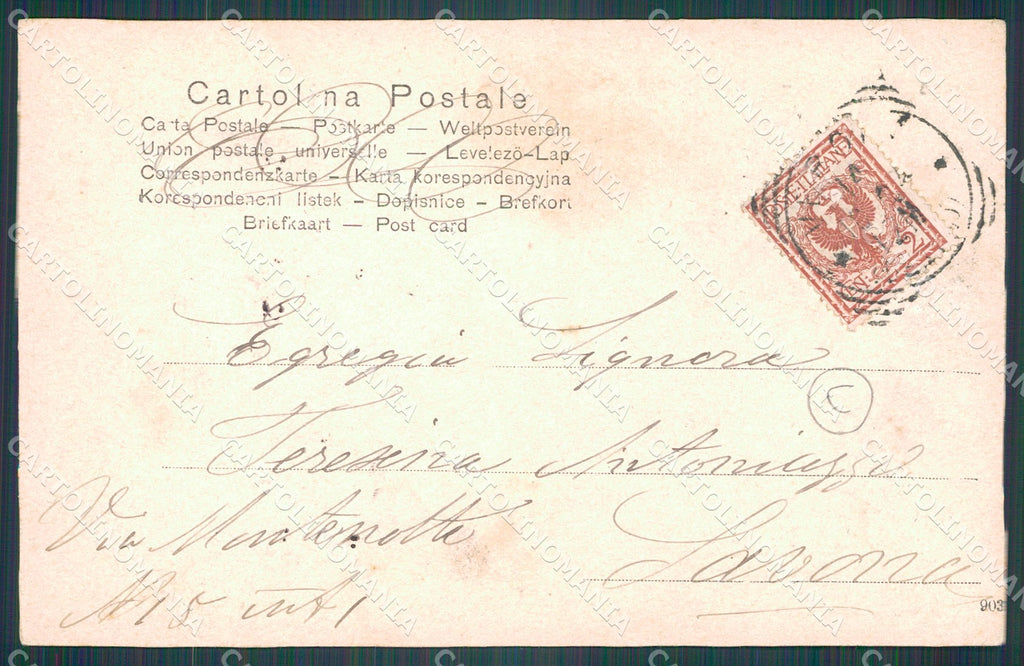 Cartolina Postale
Carta Postale — Postkarte — Weltpostverein
Union postale universelle — Levelező-Lap
Correspondenzkarte - Karta korespondencyjna
Korespondencni listek - Dopisnice - Brefkort
Briefkaart — Post card
Egregia Signora
C
Teresina Antoniazzi
Via Montenotte
Savona
N 15 int 1
903
CARTOLINOMANIA